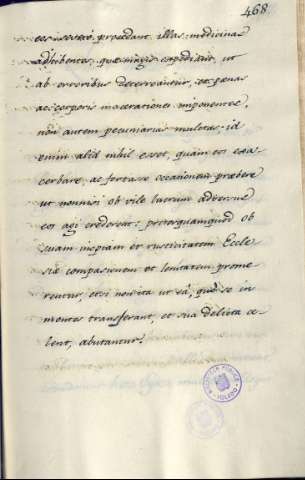 468.
eos procedant, illas medicinas
adhibentes, quæ magis expediunt, ut
ab erroribus deterreantur, et pœnas
ac corporis macerationes imponentes,
non autem pecuniarias mulctas: id
enim aliud nihil esset, quàm eos exa
cerbare, ac fortasse occasionem præbere
ut nonnisi ob vile lucrum adversus
eos agi crederent: præterquamquod ob
suam inopiam et rusticitatem Eccle
siæ compassionem et lenitatem prome
rentur, etsi non ita ut eâ, quò se in
montes transferant, et sua delicta ce
lent, abutantur.
BIBLIOTECA PUBLICA
TOLEDO